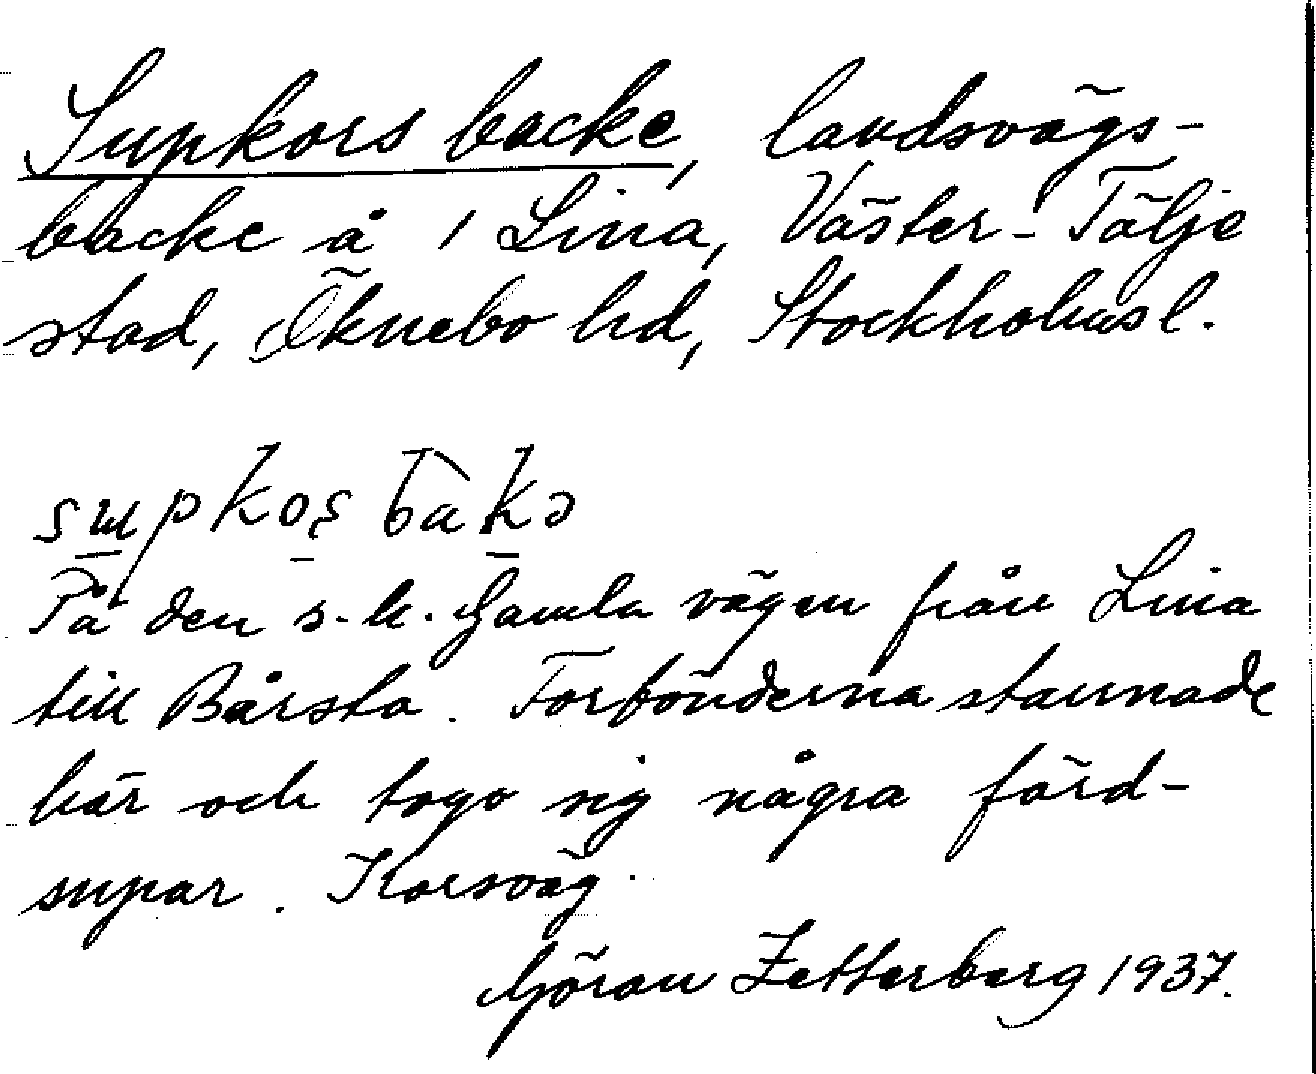 Supkors backe, landsvägs-
backe å 1 Lina, Väster-Tälje
stad, Öknebo hd, Stockholms l.
supkoʂ bàkə
På den s.k. Gamla vägen från Lina
till Bårsta. Forbönderna stannade
här och togo sig några färd-
supar. Korsväg.
Göran Zetterberg 1937.